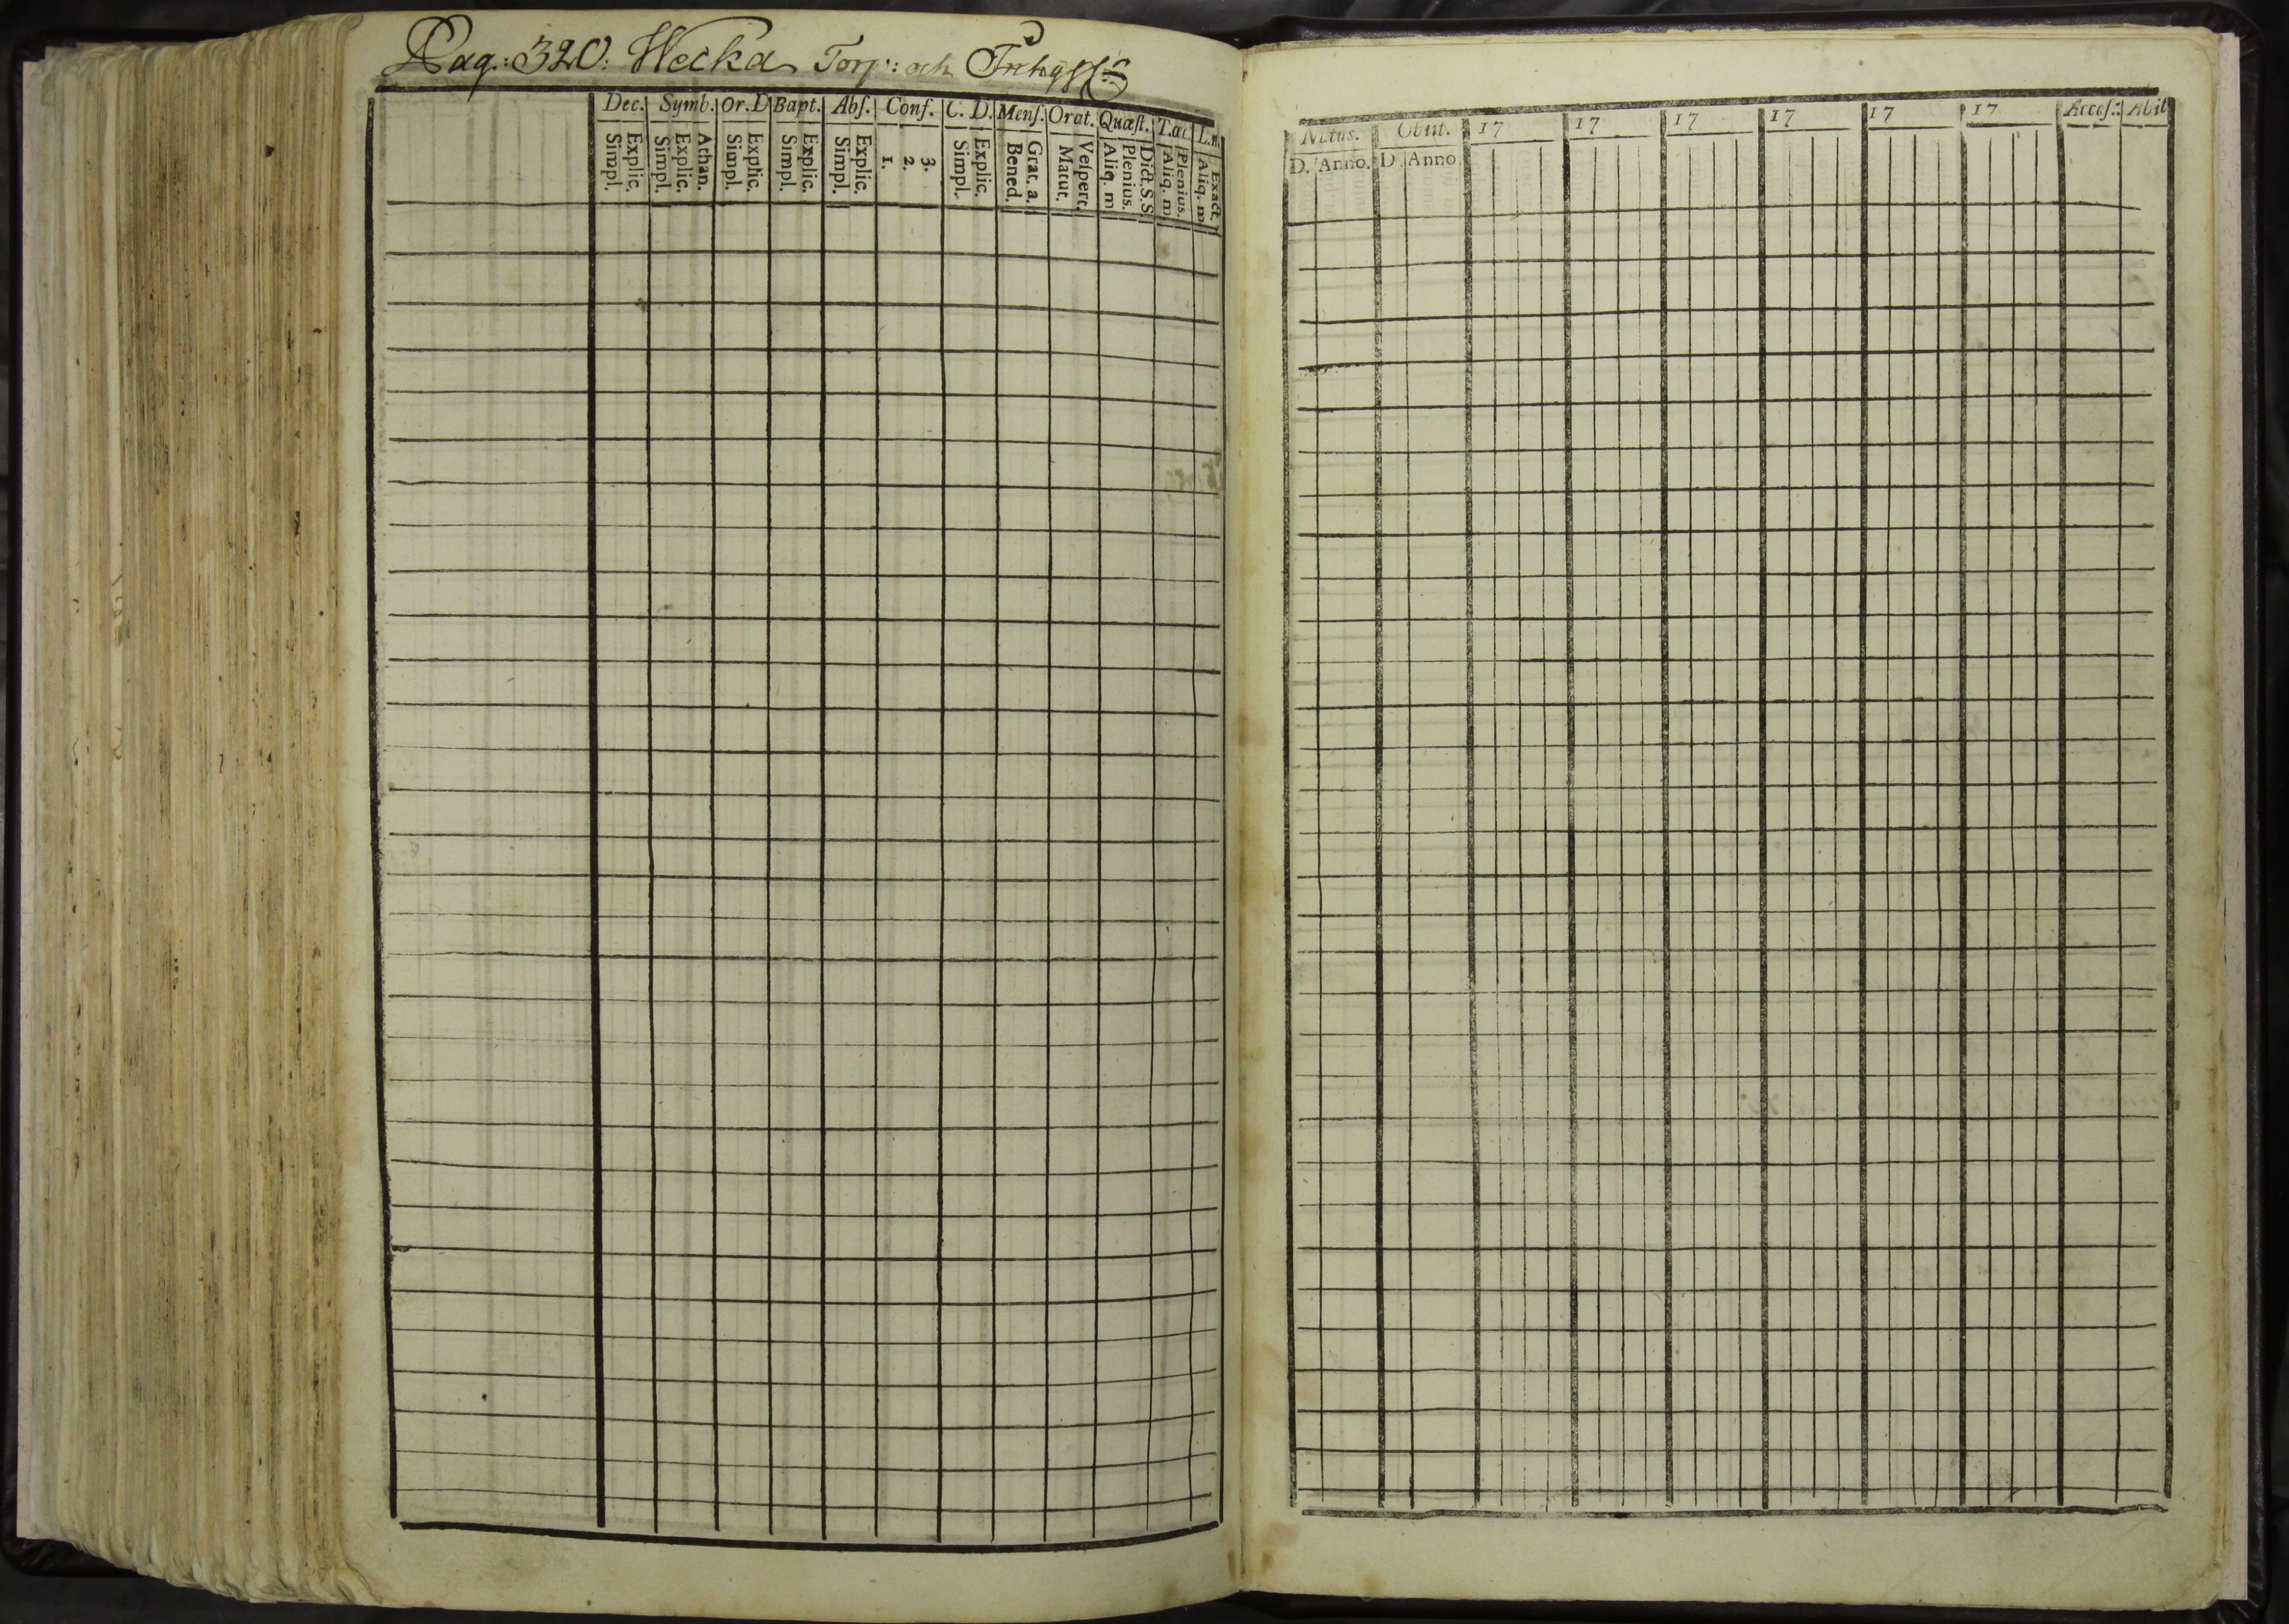 Pag: 320. Wecka Torp: och
Dec. Symb. Or. D Bapt. Abſ. Conf. C. D. Menſ. Orat. Quæſt. T.œc.
Simpl. Explic. Simpl. Explic. Athan. Simpl. Explic. Simpl. Explic. Simpl. Explic. 1. 2. 3. Simpl. Explic. Bened. Grat. a. Matut. Veſpert. Aliq. m Plenius. Dict. S.S Aliq. m Plenius. Aliq. m Exact.
Natus. Obiit. 17 17 17 17 17 17 Acceſ: Abit
D. Anno. D. Anno.